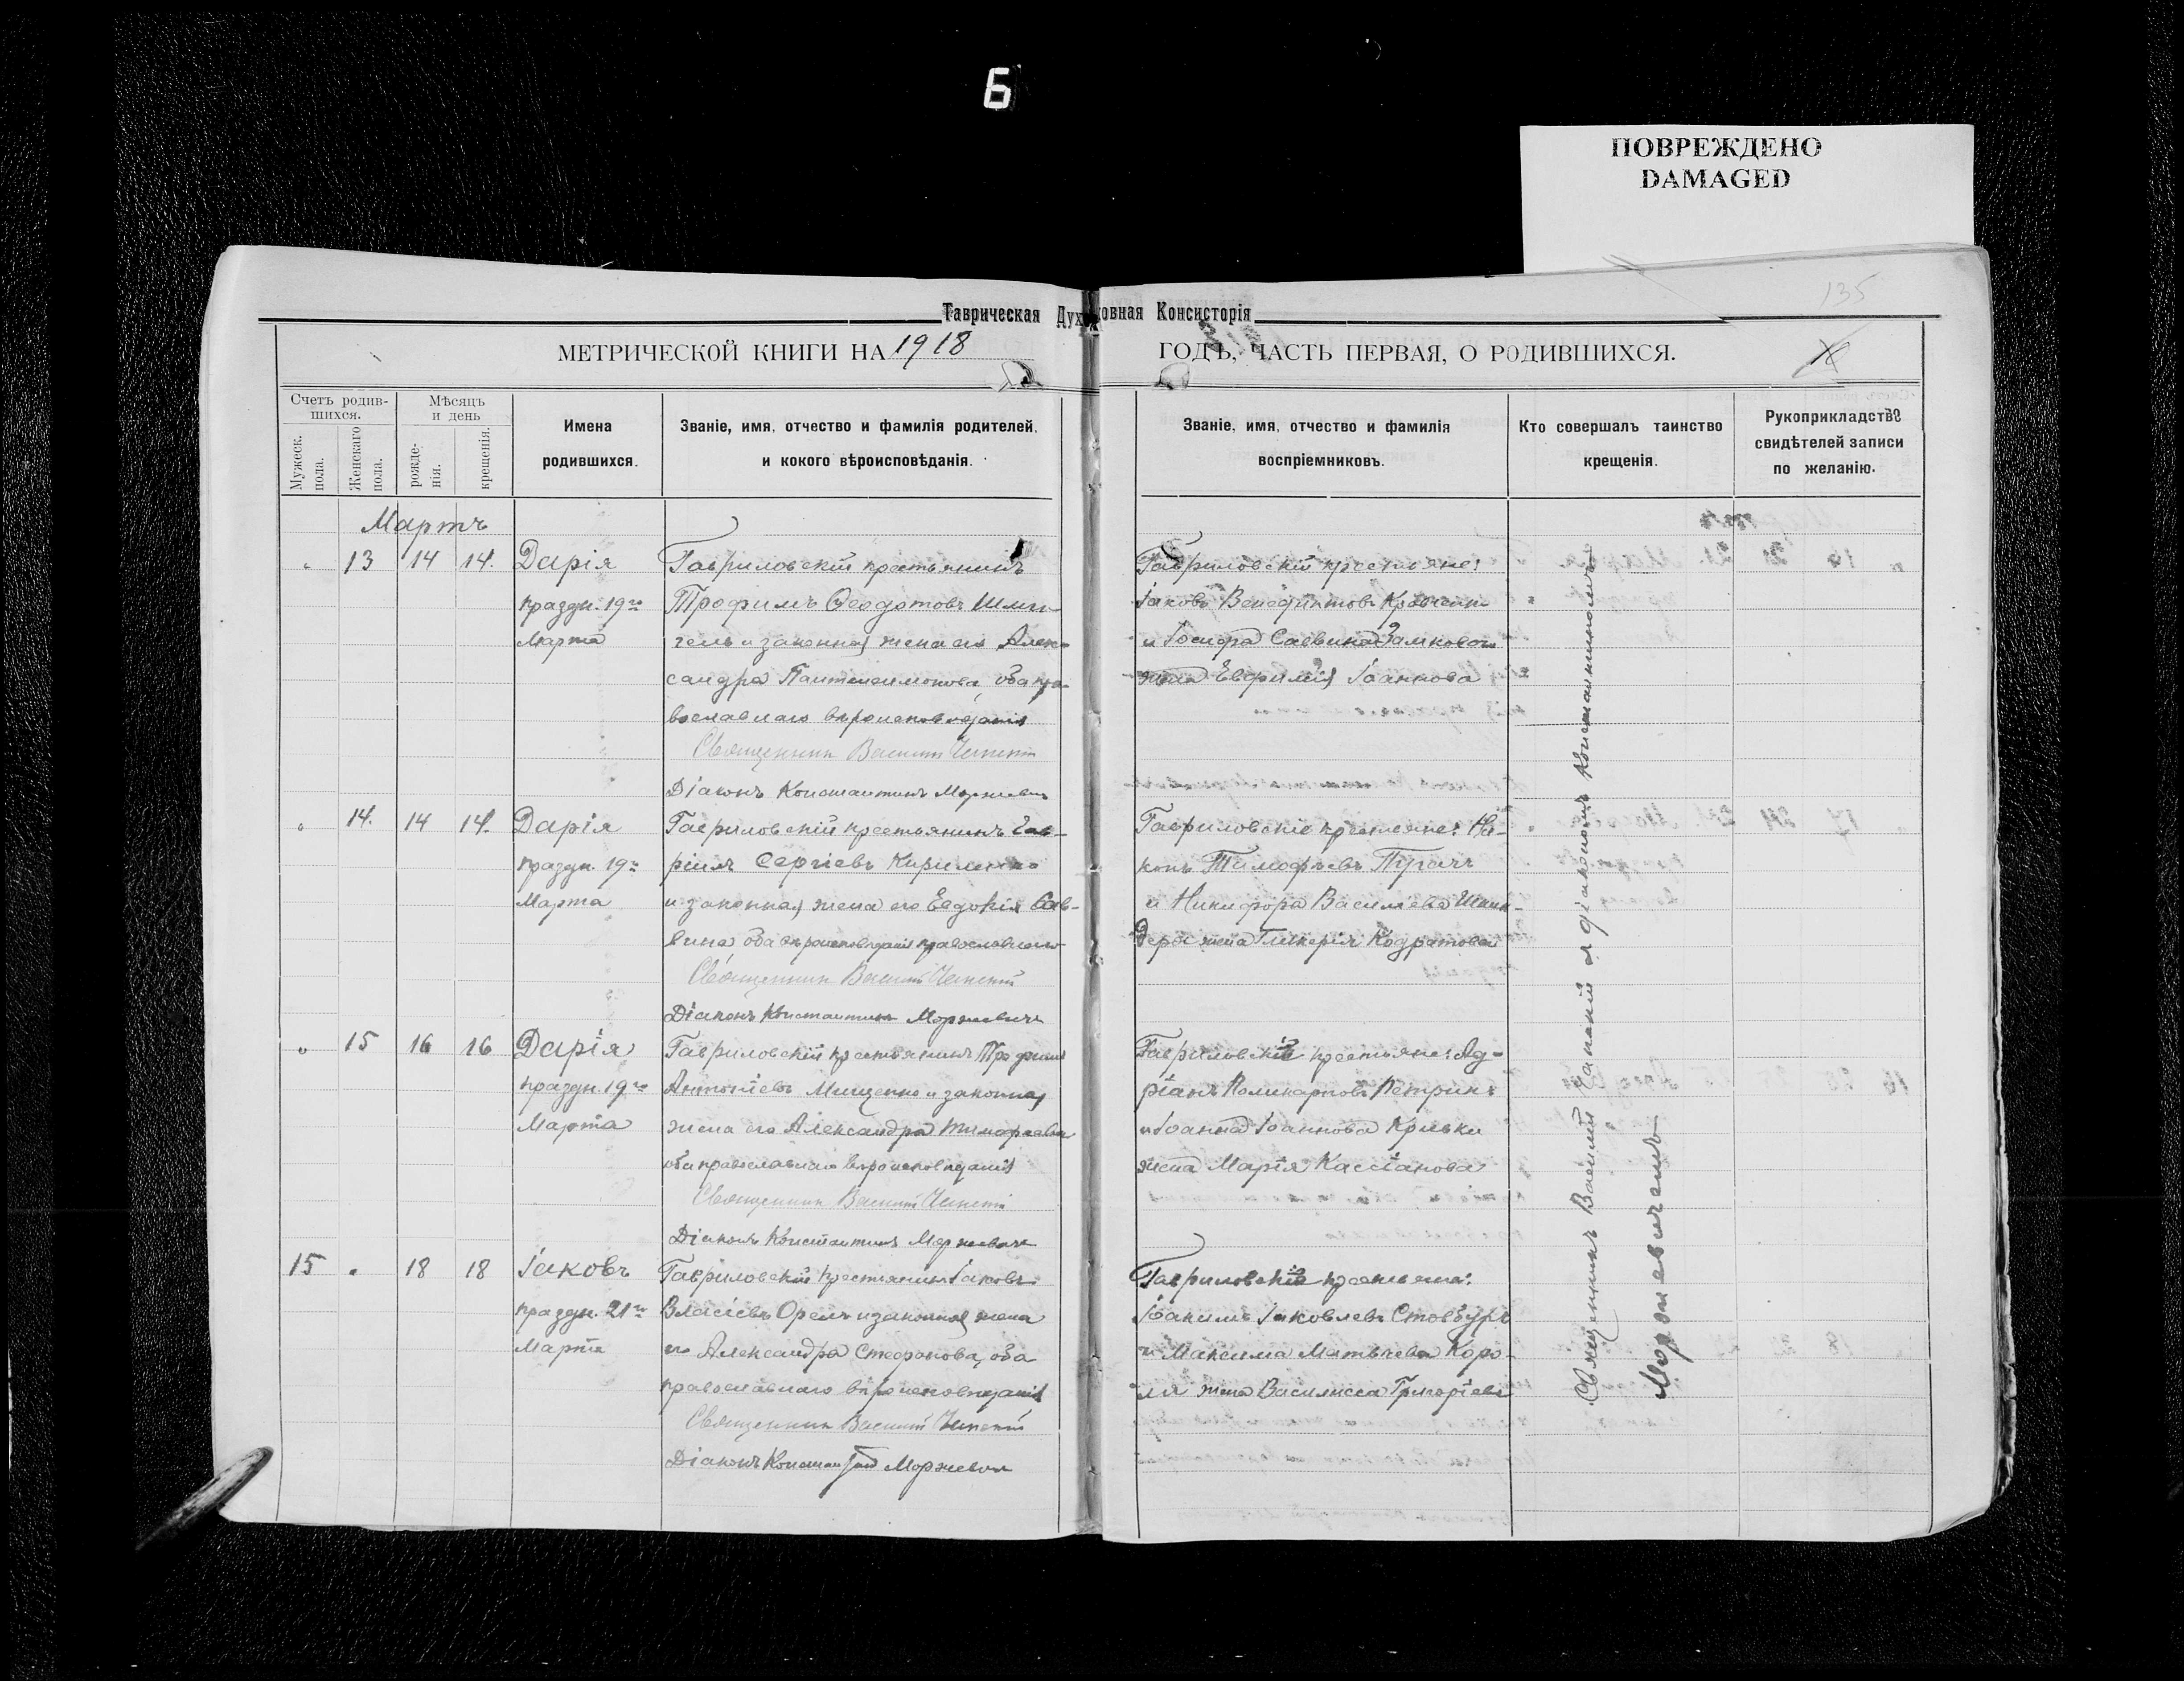 Б
ПОВРЕЖДЕНО
DAMAGED
135
Таврическая Духовная Консисторія
МЕТРИЧЕСКОЙ КНИГИ НА 1918
ГОДЪ, ЧАСТЬ ПЕРВАЯ, О РОДИВШИХСЯ.
Счетъ родив-
шихся.
Мужеск.
пола.
Женскаго
пола.
Мѣсяцъ
и день
рожде-
нія.
крещенія.
Имена
родившихся.
Званіе, имя, отчество и фамилія родителей,
и кокого вѣроисповѣданія.
Званіе, имя, отчество и фамилія
воспріемниковъ.
Кто совершалъ таинство
крещенія.
Рукоприкладство
свидѣтелей записи
по желанію.
Мартъ
13 14 14. Дарія
праздн. 19го
Марта
Гавриловскій крестьянинъ
Трофимъ Ѳеодотовъ
и законная жена его Алек-
сандра Пантелеимонова, оба пра-
вославнаго вѣроисповѣданія
Священникъ Василій
Діаконъ Константинъ Моржевичъ
Гавриловскій крестьяне:
Іаковъ Венедиктовъ Кравченко
и Саввина
жена Евфимія Іоаннова
14. 14 14. Дарія
праздн. 19го
Марта
Гавриловскій крестьянинъ Гав-
ріилъ Сергіевъ Кириленко
и законная жена его Евдокія Сав-
вина оба вѣроисповѣданія православнаго
Священникъ Василій
Діаконъ Константинъ Моржевичъ
Гавриловскіе крестьяне: Ни-
конъ Тимофѣевъ
и Никифора Васильева Шкин-
дера жена Гликерія Кодратова
15 16 16 Дарія
праздн. 19го
Марта
Гавриловскій крестьянинъ Трофимъ
Антоніевъ Мищенко и законная
жена его Александра Тимофеева
оба православнаго вѣроисповѣданія
Священникъ Василій
Діаконъ Константинъ Моржевичъ
Гавриловскіе крестьяне: Ад-
ріанъ Поликарповъ Петрикъ
и Іоанна Іоаннова Кривки
жена Марія Кассіанова
15 18 18 Іаковъ
праздн. 21го
Марта
Гавриловскій крестьянинъ Іаковъ
Власіевъ Орелъ и законная жена
его Александра Стефанова, оба
православнаго вѣроисповѣданія
Священникъ Василій
Діаконъ Константинъ Моржевичъ
Гавриловскіе крестьяне:
Іоакимъ Іаковлевъ Стовбуръ
и Максима Матвѣева Коро-
ля жена Василисса Григоріева
Священникъ Василій съ діакономъ Константиномъ
Моржевичемъ